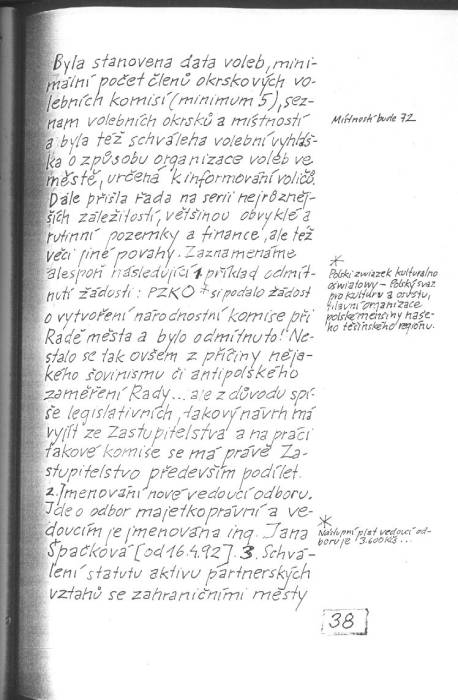 Byla stanovena data voleb, mini-
mální počet členů okrskových vo-
lebních komisí (minimum 5), sez-
nam volebních okrsků a místností
a byla též schválena volební vyhláš-
ka o způsobu organizace voleb ve
městě, určená k informování voličů.
Dále přišla řada na serii nejrůzněj-
ších záležitostí, většinou obvyklé a
rutinní pozemky a finance, ale též
věci jiné povahy. Zaznamenáme
alespoň následující: 1. příklad odmít-
nutí žádosti: PZKO * si podalo žádost
o vytvoření národnostní komise při
Radě města a bylo odmítnuto! Ne-
stalo se tak ovšem z příčiny něja-
kého šovinismu či antipolského
zaměření Rady... ale z důvodu spí-
še legislativních, takový návrh má
vyjít ze Zastupitelstva a na práci
takové komise se má právě Za-
stupitelstvo především podílet.
2. Jmenování nové vedoucí odboru.
Jde o odbor majetkoprávní a ve-
doucím je jmenována ing. Jana
Špačková [od 16.4.92]. 3. Schvá-
lení statutu aktivu partnerských
vztahů se zahraničními městy
Místností bude 72
*
Polski związek kulturalno
oświatowy - Polský svaz
pro kulturu a osvětu,
hlavní organizace
polské menšiny naše-
ho těšínského regionu.
*
Nástupní plat vedoucí od-
boru je 3.600 Kčs...
38